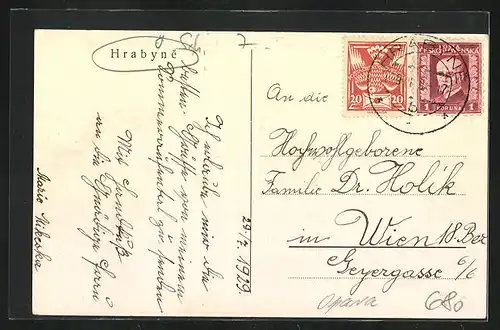 Hrabyně
7
29/7 1929
Ich erlaube mir die
besten Grüße von meinem
Sommeraufenthalt zu senden
Mit Handkuß
an die Gnädige Frau
Mario Mikeska
ČESKOSLOVENSKO
20 20
1 KORUNA 1
An die
Hochwohlgeborene
Familie Dr. Holík
in Wien 18. Bez
Geyergasse 6/6
Opava
680